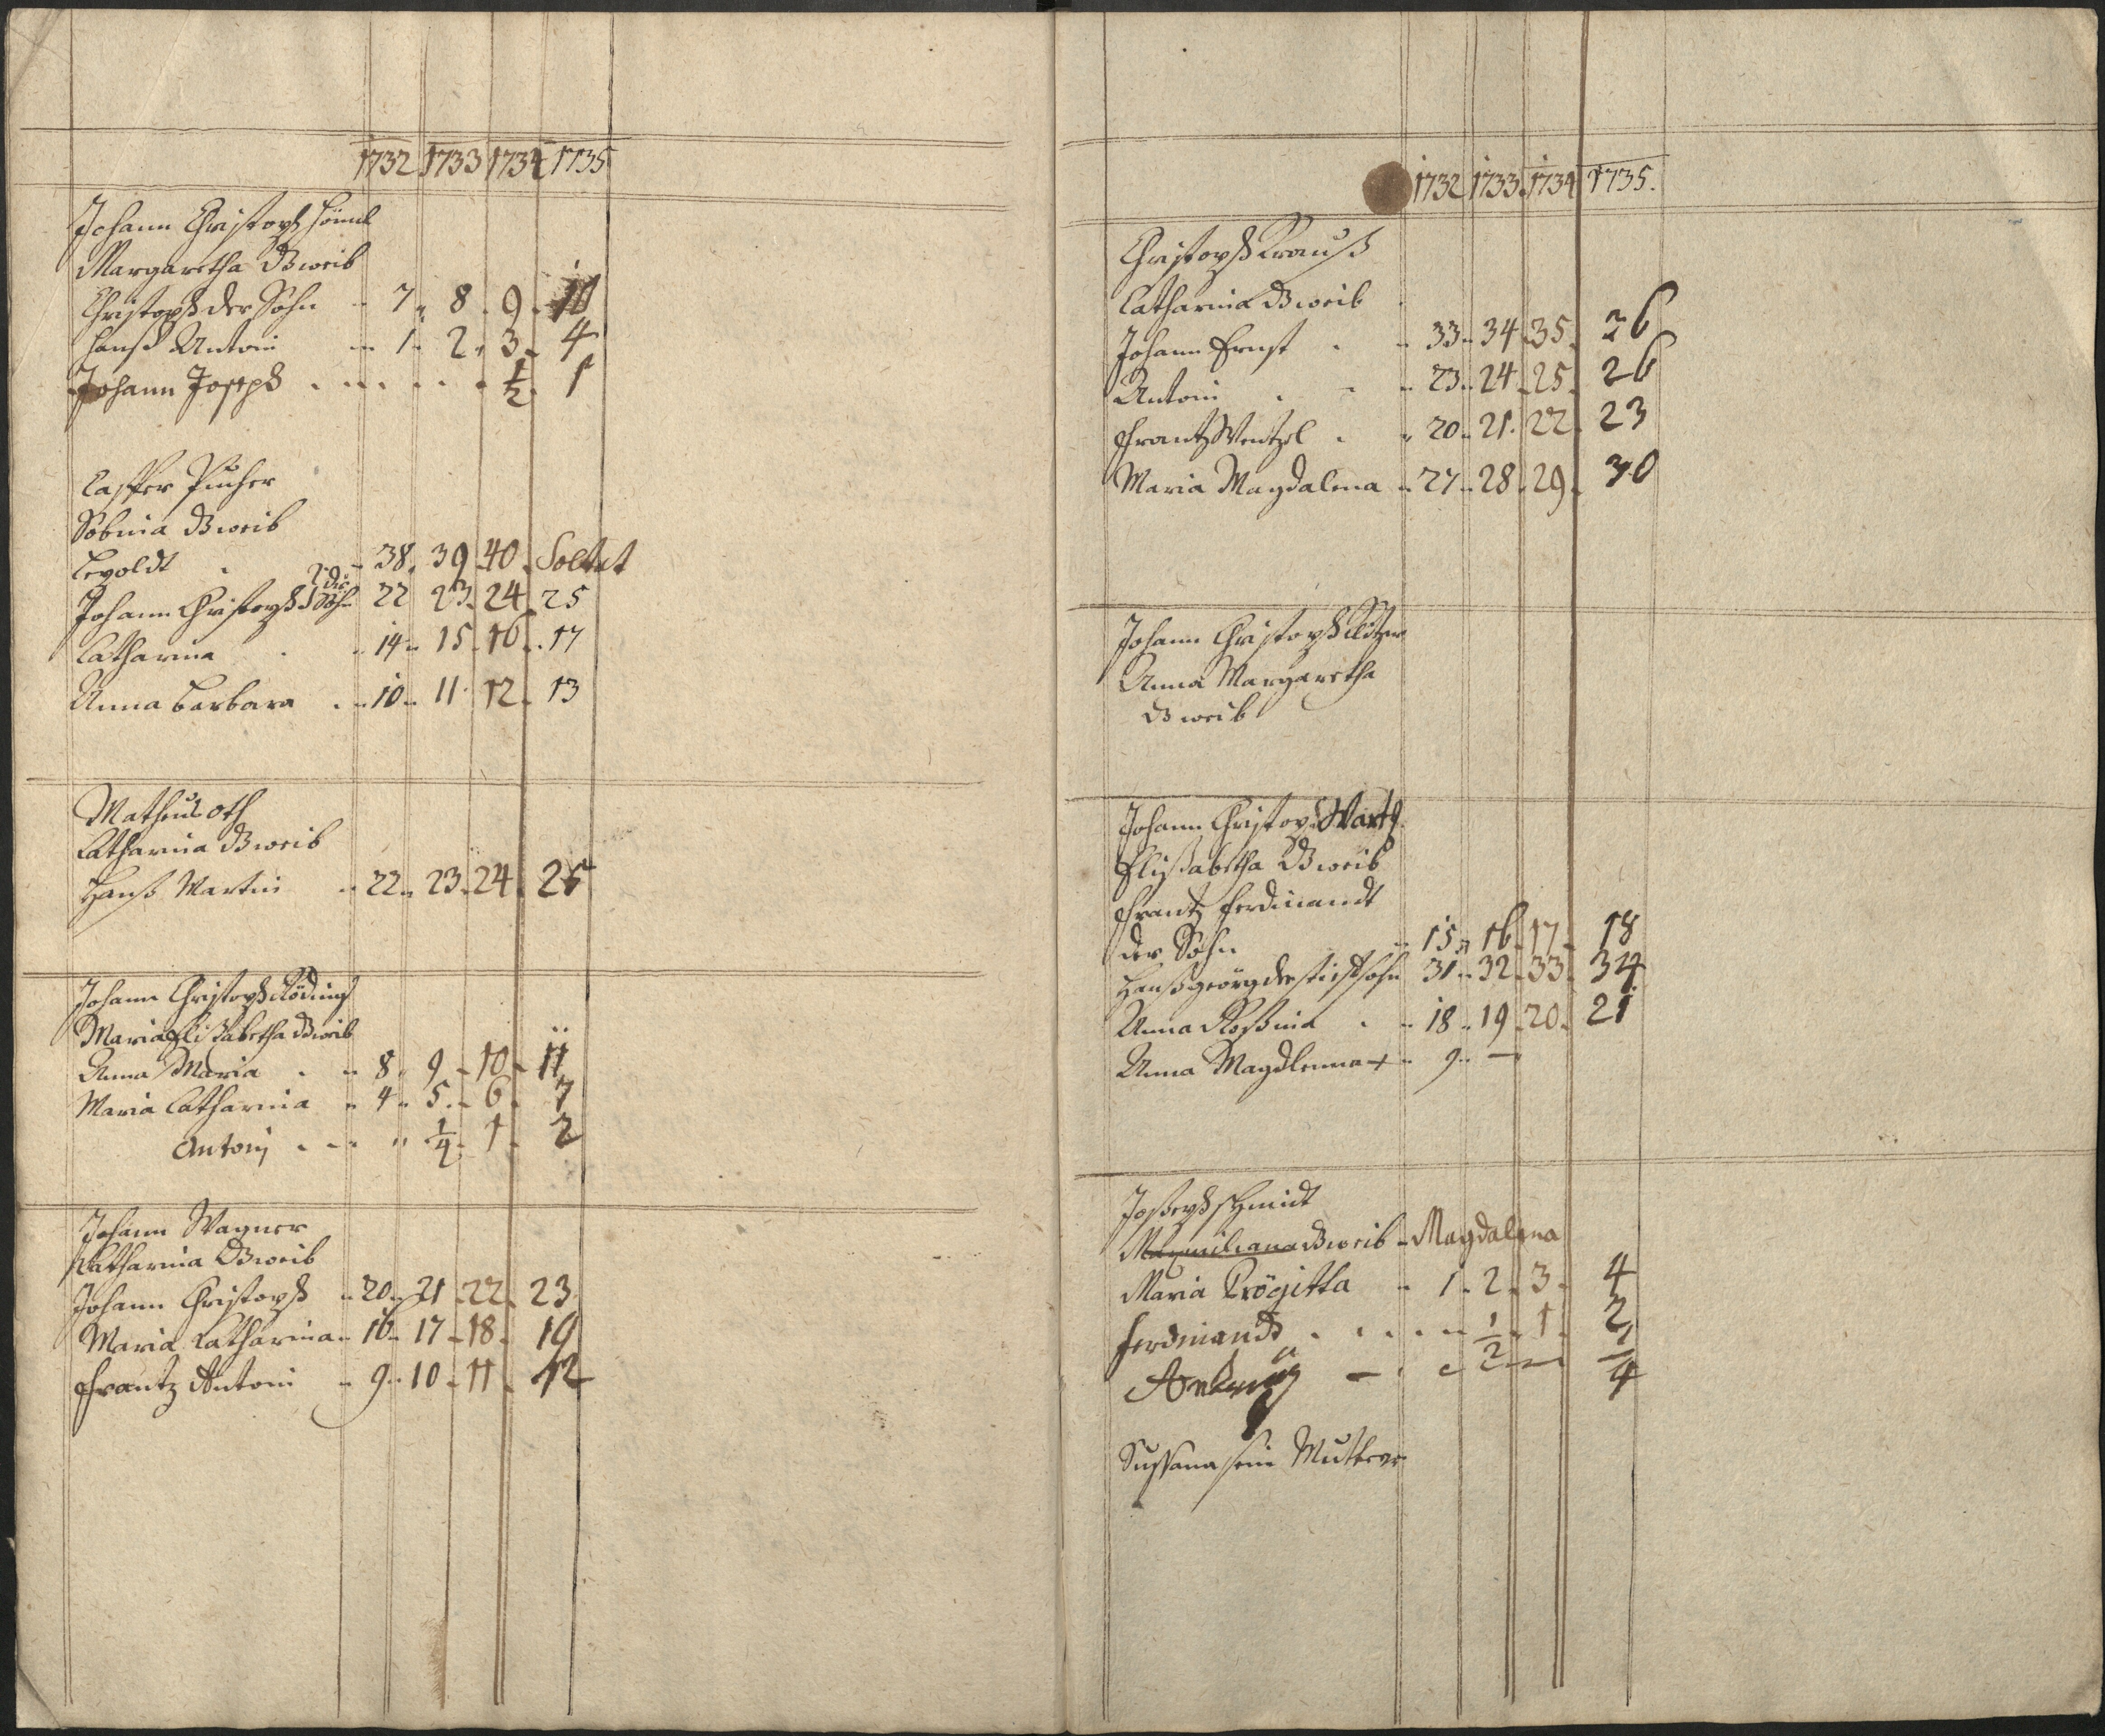 1732 1733 1734 1735
Johann Christoph
Margaretha dß weib
Christoph der Sohn - 7 - 8 - 9 - 10
Hanß Antoni - 1 - 2 - 3 - 4
Johann Joseph - - - - - 1/2 - 1
Casper Pucher
Sobina dß weib
Leopoldt - 38 - 39 - 40 - Soldat
Johann Christoph 22 23 - 24 - 25
Catharina - 14 - 15 - 16 - 17
Anna Barbara - 10 - 11 - 12 - 13
Matheus Oth
Catharina dß weib
Hanß Martin - 22 - 23 - 24 - 25
Johann Christoph
Maria Elisabetha dß weib
Anna Maria - 8 - 9 - 10 - 11
Maria Catharina - 4 - 5 - 6 - 7
Antonj - - - 1/4 - 1 - 2
Johann Wagner
Catharina dß weib
Johann Christoph - 20 - 21 - 22 - 23
Maria Catharina - 16 - 17 - 18 - 19
Frantz Antoni - 9 - 10 - 11 - 12
1732 1733 1734 1735.
Christoph Krauß
Catharina dß weib
Johann Ernst - 33 - 34 - 35 - 36
Antoni - - 23 - 24 - 25 - 26
Frantz Wentzel - 20 - 21 - 22 - 23
Maria Magdalena - 27 - 28 - 29 - 30
Johann Christoph
Anna Margaretha
dß weib
Johann Christoph Warth
Elisabetha dß weib
Frantz Ferdinandt
der Sohn - 15 - 16 - 17 - 18
Hanß Georg der stiefsohn 31 - 32 - 33 - 34
Anna Rosina - 18 - 19 - 20 - 21
Anna Magdlenna + - 9 - —
Joseph Schmidt
Maximiliana dß weib - Magdalena
Maria Brögitta - 1 - 2 - 3 - 4
Ferdinandt - - - - 1/2 - 1 - 2
- - - — 1/4
Sussana sein Mutter